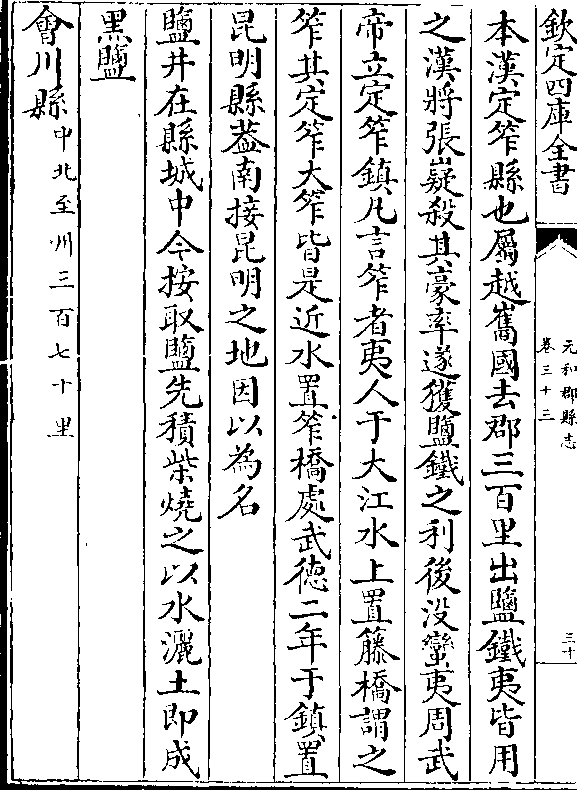 欽定四庫全書
元和郡縣志
卷三十三
三十
本漢定笮縣也屬越巂國去郡三百里出鹽鐵夷皆用
之漢將張嶷殺其豪率遂獲鹽鐵之利後没蠻夷周武
帝立定笮鎮凡言笮者夷人于大江水上置藤橋謂之
笮其定笮大笮皆是近水置笮橋處武徳二年于鎮置
昆明縣葢南接昆明之地因以為名
鹽井在縣城中今按取鹽先積柴燒之以水灑土即成
黑鹽
會川縣中北至州三百七十里